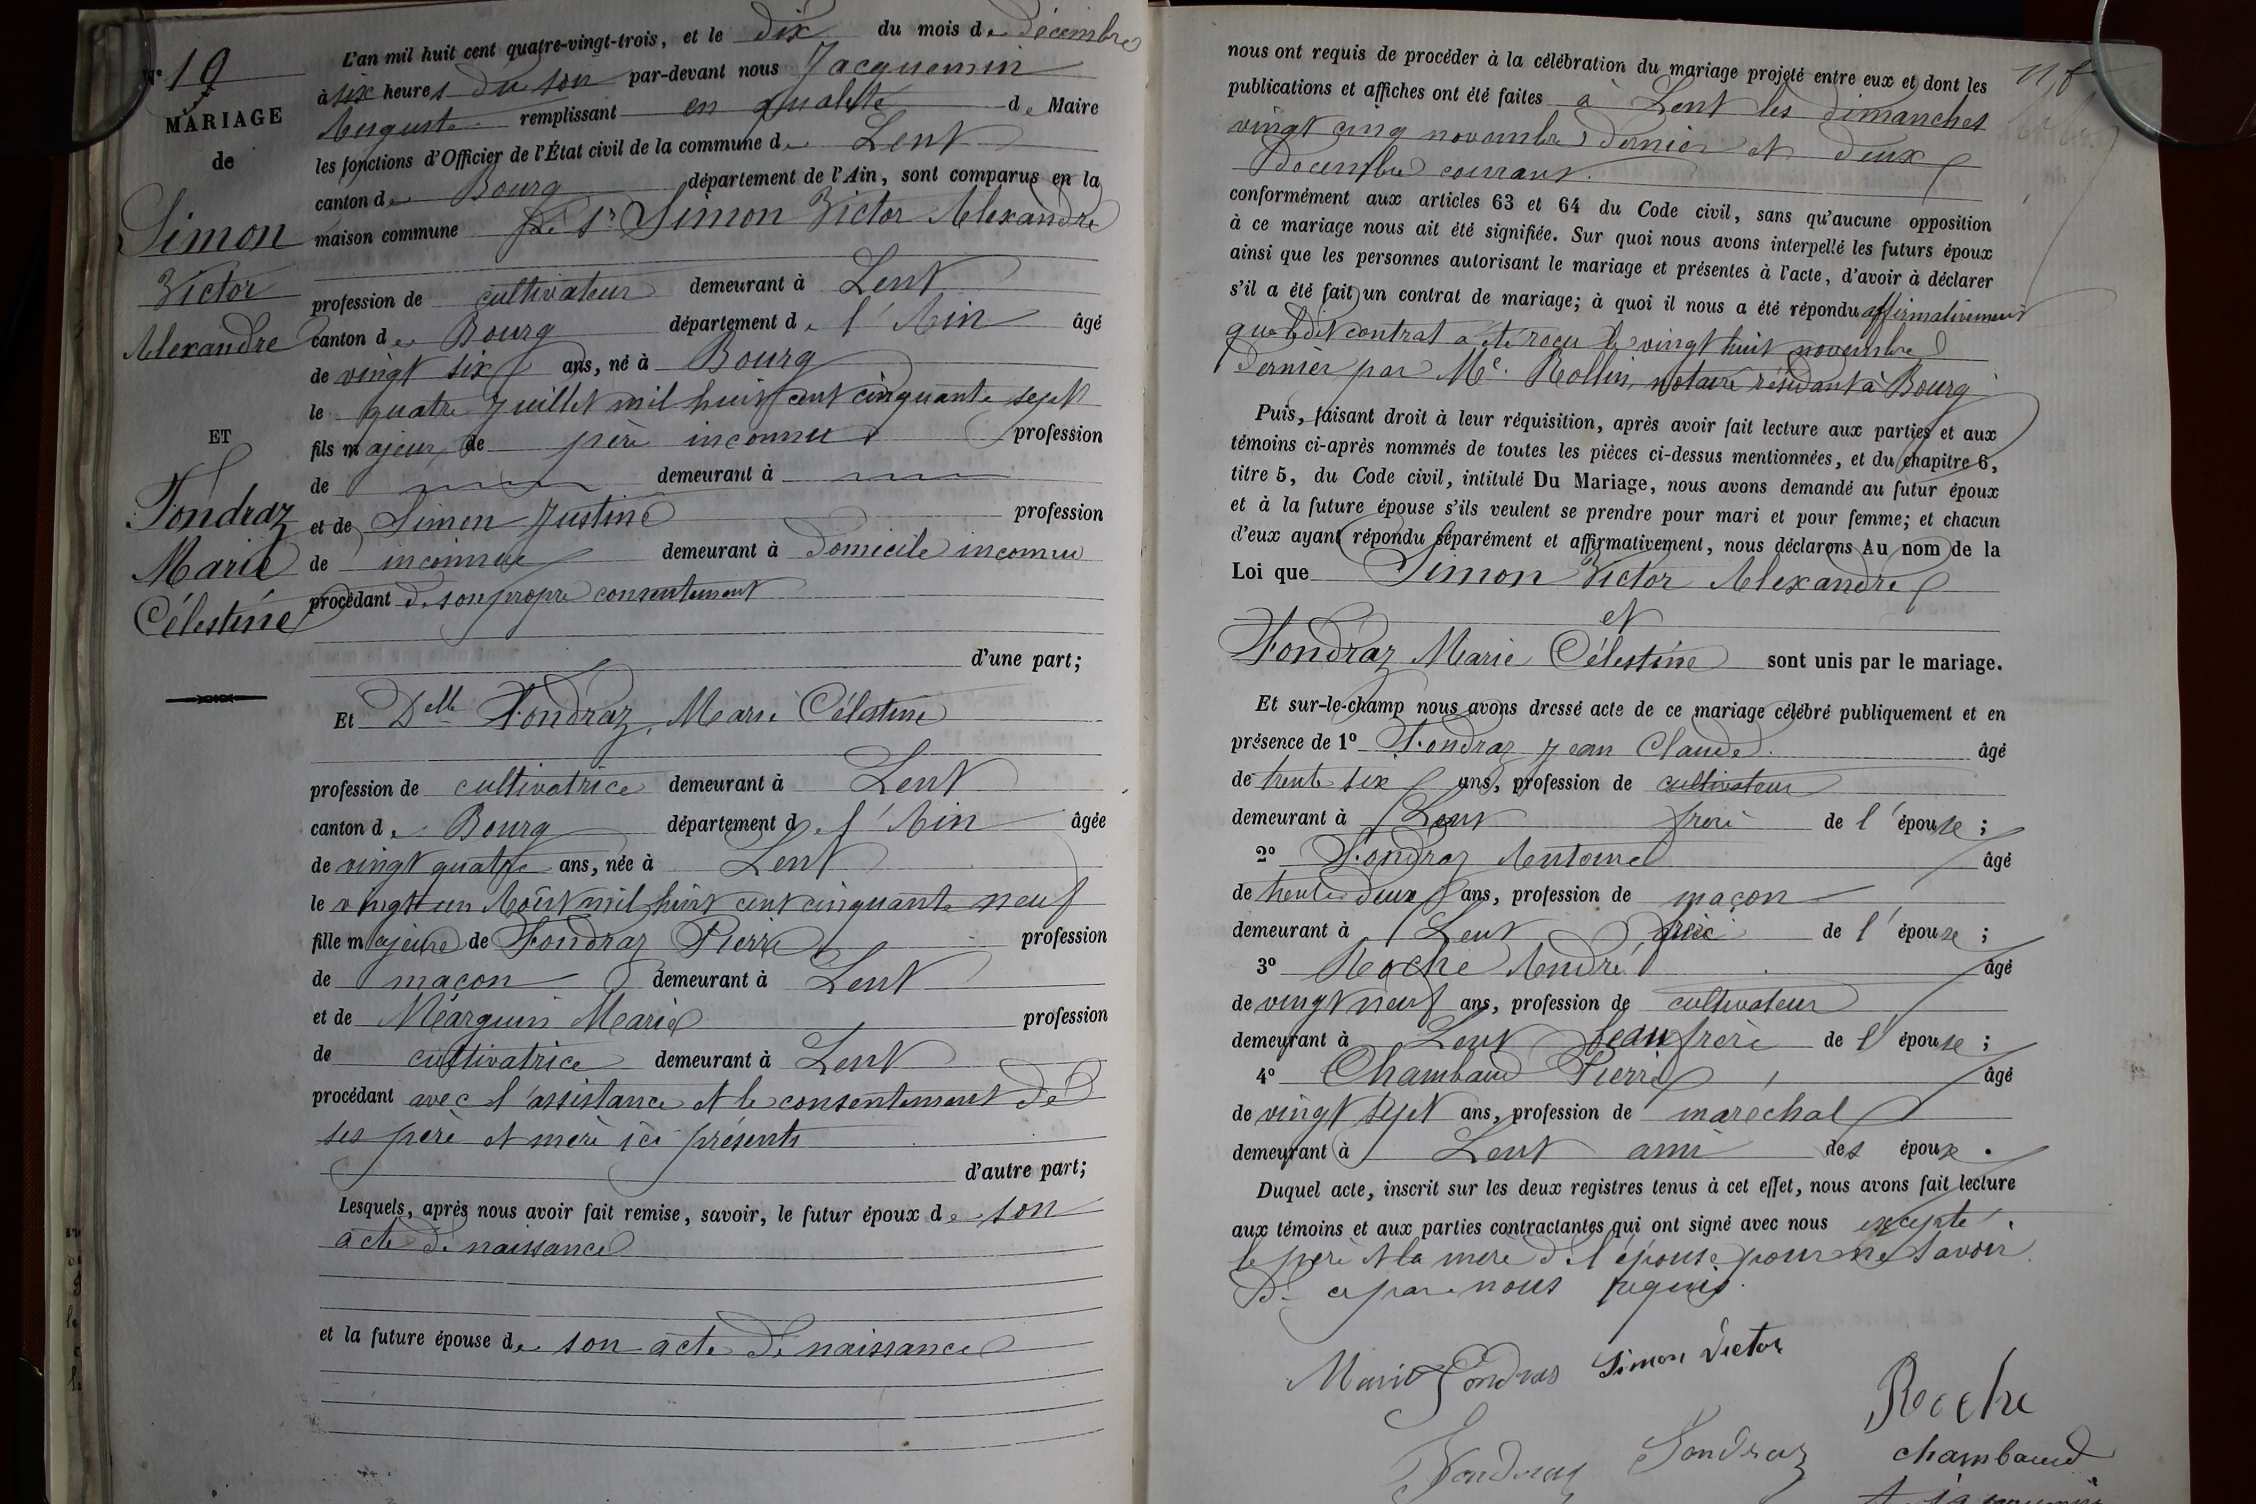 N° 19
MARIAGE
de
Simon
Victor
Alexandre
ET
Fondraz
Marie
Célestine
L'an mil huit cent quatre-vingt-trois, et le dix du mois de Décembre
à six heures du soir par-devant nous Jacquemin
Auguste remplissant en qualité de Maire
les fonctions d'Officier de l'État civil de la commune de Lent
canton de Bourg département de l'Ain, sont comparus en la
maison commune Le Sr Simon Victor Alexandre
profession de cultivateur demeurant à Lent
canton de Bourg département de l'Ain âgé
de vingt six ans, né à Bourg
le quatre Juillet mil huit cent cinquante sept
fils majeur de père inconnu profession
de demeurant à
et de Simon Justine profession
de inconnue demeurant à Domicile inconnu
procédant de son propre consentement
d'une part;
Et Delle Fondraz Marie Célestine
profession de cultivatrice demeurant à Lent
canton de Bourg département de l'Ain âgée
de vingt quatre ans, née à Lent
le vingt un Août mil huit cent cinquante neuf
fille majeure de Fondraz Pierre profession
de maçon demeurant à Lent
et de Marguin Marie profession
de cultivatrice demeurant à Lent
procédant avec l'assistance et le consentement de
ses père et mère ici présents
d'autre part;
Lesquels, après nous avoir fait remise, savoir, le futur époux de son
acte de naissance
et la future épouse de son acte de naissance
nous ont requis de procéder à la célébration du mariage projeté entre eux et dont les
publications et affiches ont été faites à Lent les dimanches
vingt cinq novembre dernier et deux
Décembre courant.
conformément aux articles 63 et 64 du Code civil, sans qu'aucune opposition
à ce mariage nous ait été signifiée. Sur quoi nous avons interpellé les futurs époux
ainsi que les personnes autorisant le mariage et présentes à l'acte, d'avoir à déclarer
s'il a été fait un contrat de mariage; à quoi il nous a été répondu affirmativement
que ledit contrat a été reçu le vingt huit novembre
dernier par Me. Rollin, notaire résidant à Bourg
Puis, faisant droit à leur réquisition, après avoir fait lecture aux parties et aux
témoins ci-après nommés de toutes les pièces ci-dessus mentionnées, et du chapitre 6,
titre 5, du Code civil, intitulé Du Mariage, nous avons demandé au futur époux
et à la future épouse s'ils veulent se prendre pour mari et pour femme; et chacun
d'eux ayant répondu séparément et affirmativement, nous déclarons Au nom de la
Loi que Simon Victor Alexandre
et
Fondraz Marie Célestine sont unis par le mariage.
Et sur-le-champ nous avons dressé acte de ce mariage célébré publiquement et en
présence de 1° Fondraz Jean Claude. âgé
de trente six ans, profession de cultivateur
demeurant à Lent frère de l'épouse;
2° Fondraz Antoine âgé
de trente deux ans, profession de maçon
demeurant à Lent frère de l'épouse;
3° Roche André âgé
de vingt neuf ans, profession de cultivateur
demeurant à Lent beau frère de l'épouse;
4° Chambaud Pierre âgé
de vingt sept ans, profession de marechal
demeurant à Lent ami des époux.
Duquel acte, inscrit sur les deux registres tenus à cet effet, nous avons fait lecture
aux témoins et aux parties contractantes qui ont signé avec nous excepté
le père et la mère de l'épouse pour ne savoir
De ce par nous requis.
Marie Fondras Simon Victor
Roche
Fondraz Fondraz chambaud